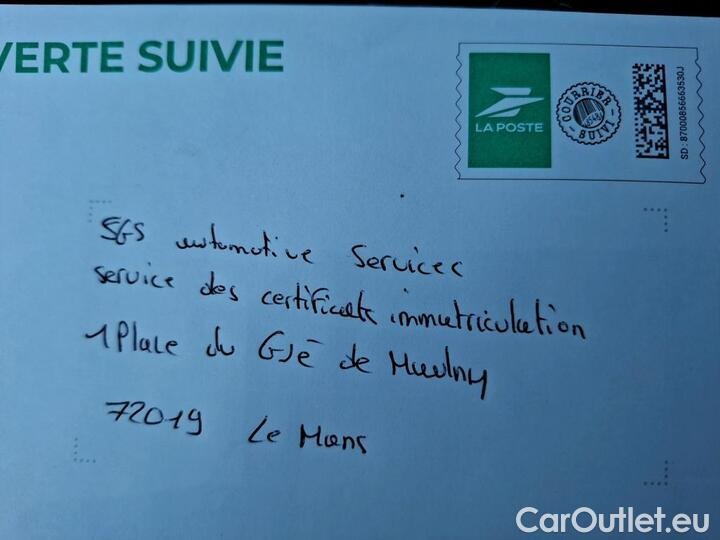 VERTE SUIVIE
LA POSTE
COURRIER SUIVI
SD : 87000856663530J
SGS automotive Services
service des certificats immatriculation
1 Place du Gué de Maulny
72019 Le Mans
CarOutlet.eu